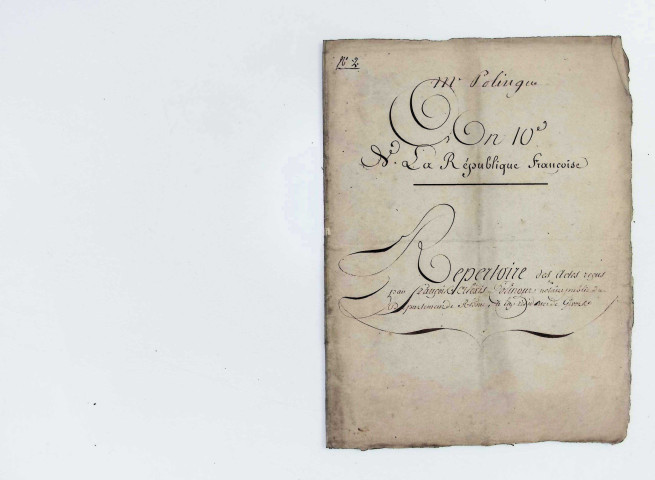 N.º 2
M.e Polingue
An 10.e
De La République Françoise
Repertoire des Actes reçus
par françois notaire public du
Département du Rhône a la résidence de Givors